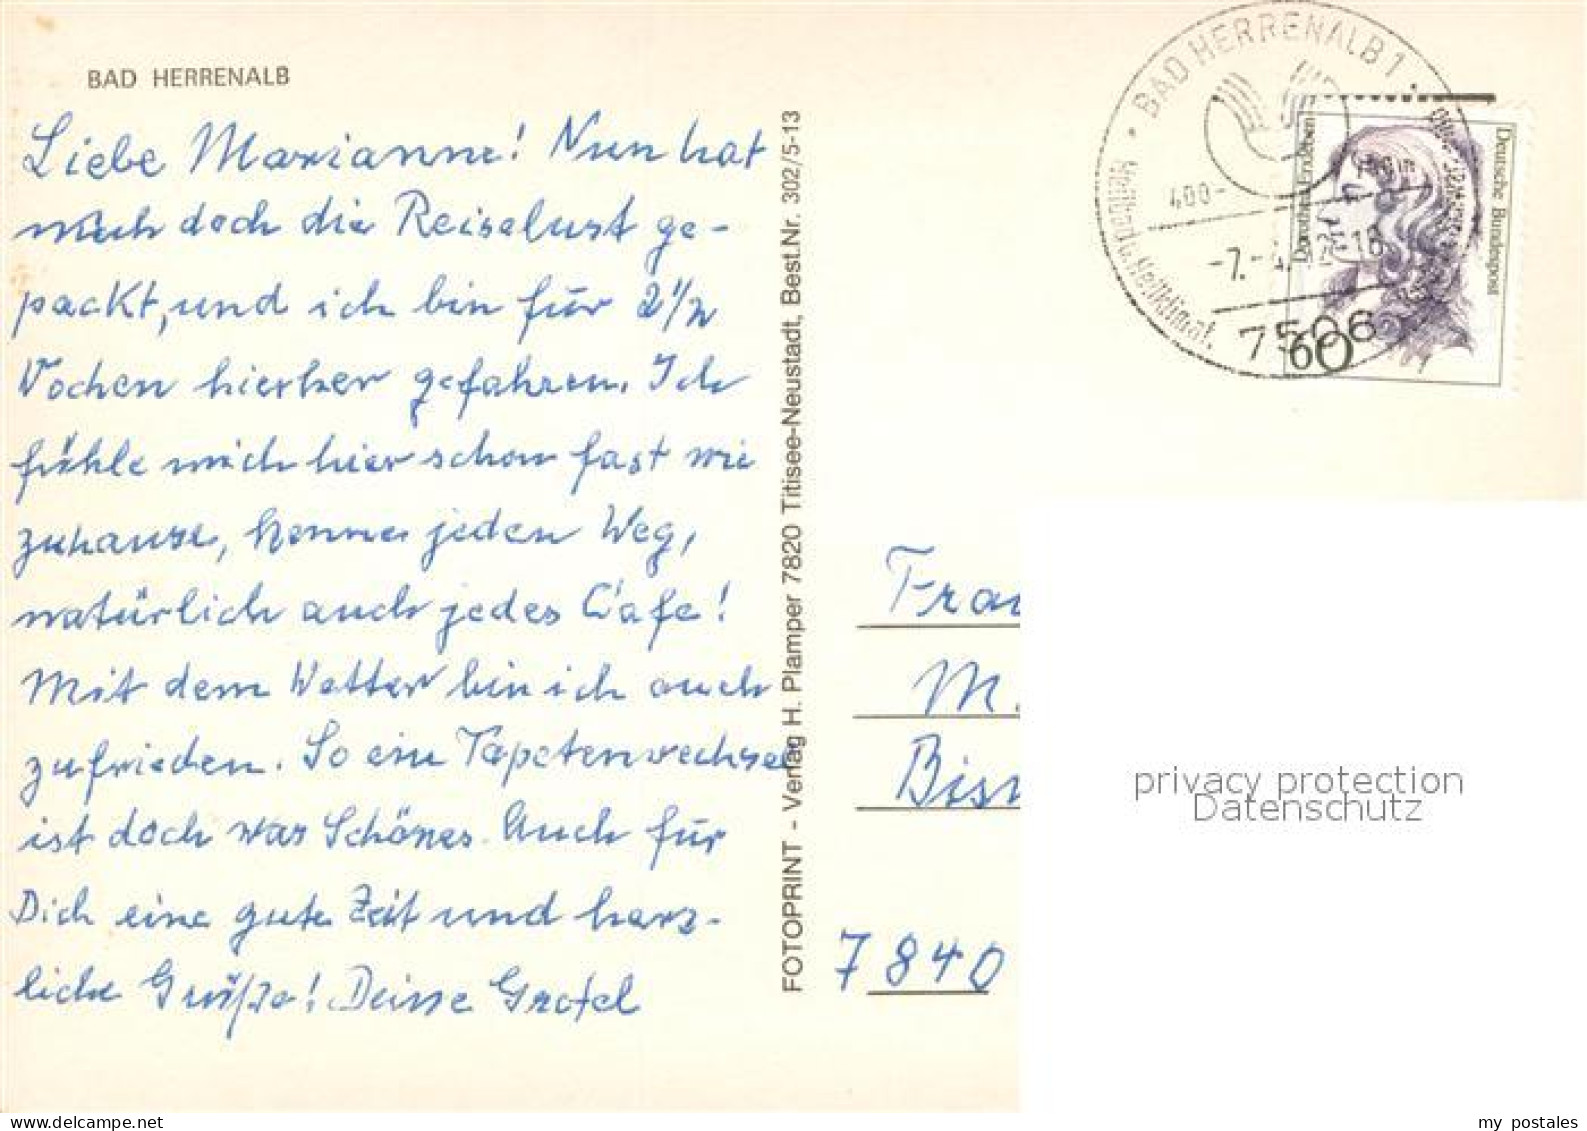 BAD HERRENALB
Liebe Marianne! Nun hat
mich doch die Reiselust ge-
packt, und ich bin für 2 1/2
Wochen hierher gefahren. Ich
fühle mich hier schon fast wie
zuhause, kenne jeden Weg,
natürlich auch jedes Cafe!
Mit dem Wetter bin ich auch
zufrieden. So ein Tapetenwechsel
ist doch was Schönes. Auch für
Dich eine gute Zeit und herz-
liche Grüße! Deine Gretel
FOTOPRINT - Verlag H. Plamper 7820 Titisee-Neustadt, Best.Nr. 302/5-13
BAD HERRENALB 1
7506
Deutsche Bundespost
Dorothea Erxleben
60
Frau
M.
Bis
7840
privacy protection
Datenschutz
my postales